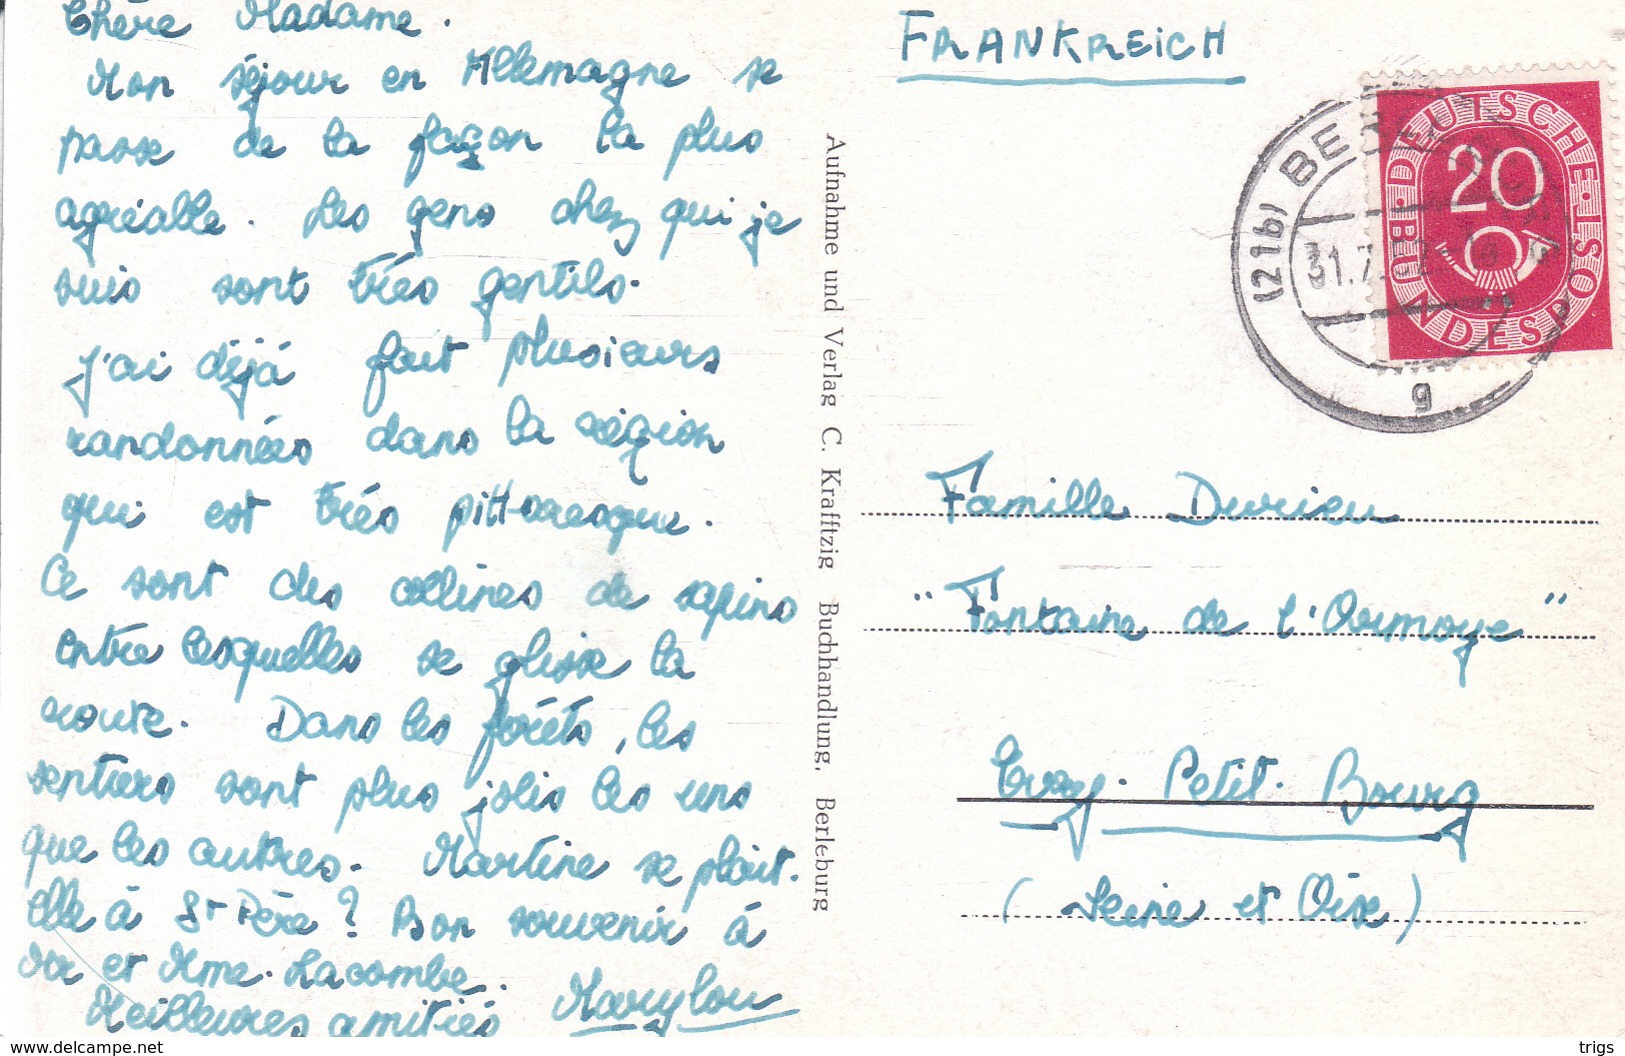 Chère Madame.
Mon séjour en Allemagne se
passe de la façon la plus
agréable. Les gens chez qui je
suis sont très gentils.
J'ai déjà fait plusieurs
randonnées dans la région
qui est très pittoresque.
Ce sont des collines de sapins
entre lesquelles se glisse la
route. Dans les forêts, les
sentiers sont plus jolis les uns
que les autres. Martine se plaît-
elle à St Père ? Bon souvenir à
Mr et Mme. Lacombe.
Meilleures amitiés Marylou
Aufnahme und Verlag C. Krafftzig Buchhandlung, Berleburg
FRANKREICH
DEUTSCHE BUNDESPOST
20
(21b) BE
31.7.52
g
Famille Durieu
"Fontaine de l'Ormoye"
Evry. Petit. Bourg
(Seine et Oise)
www.delcampe.net
trigs